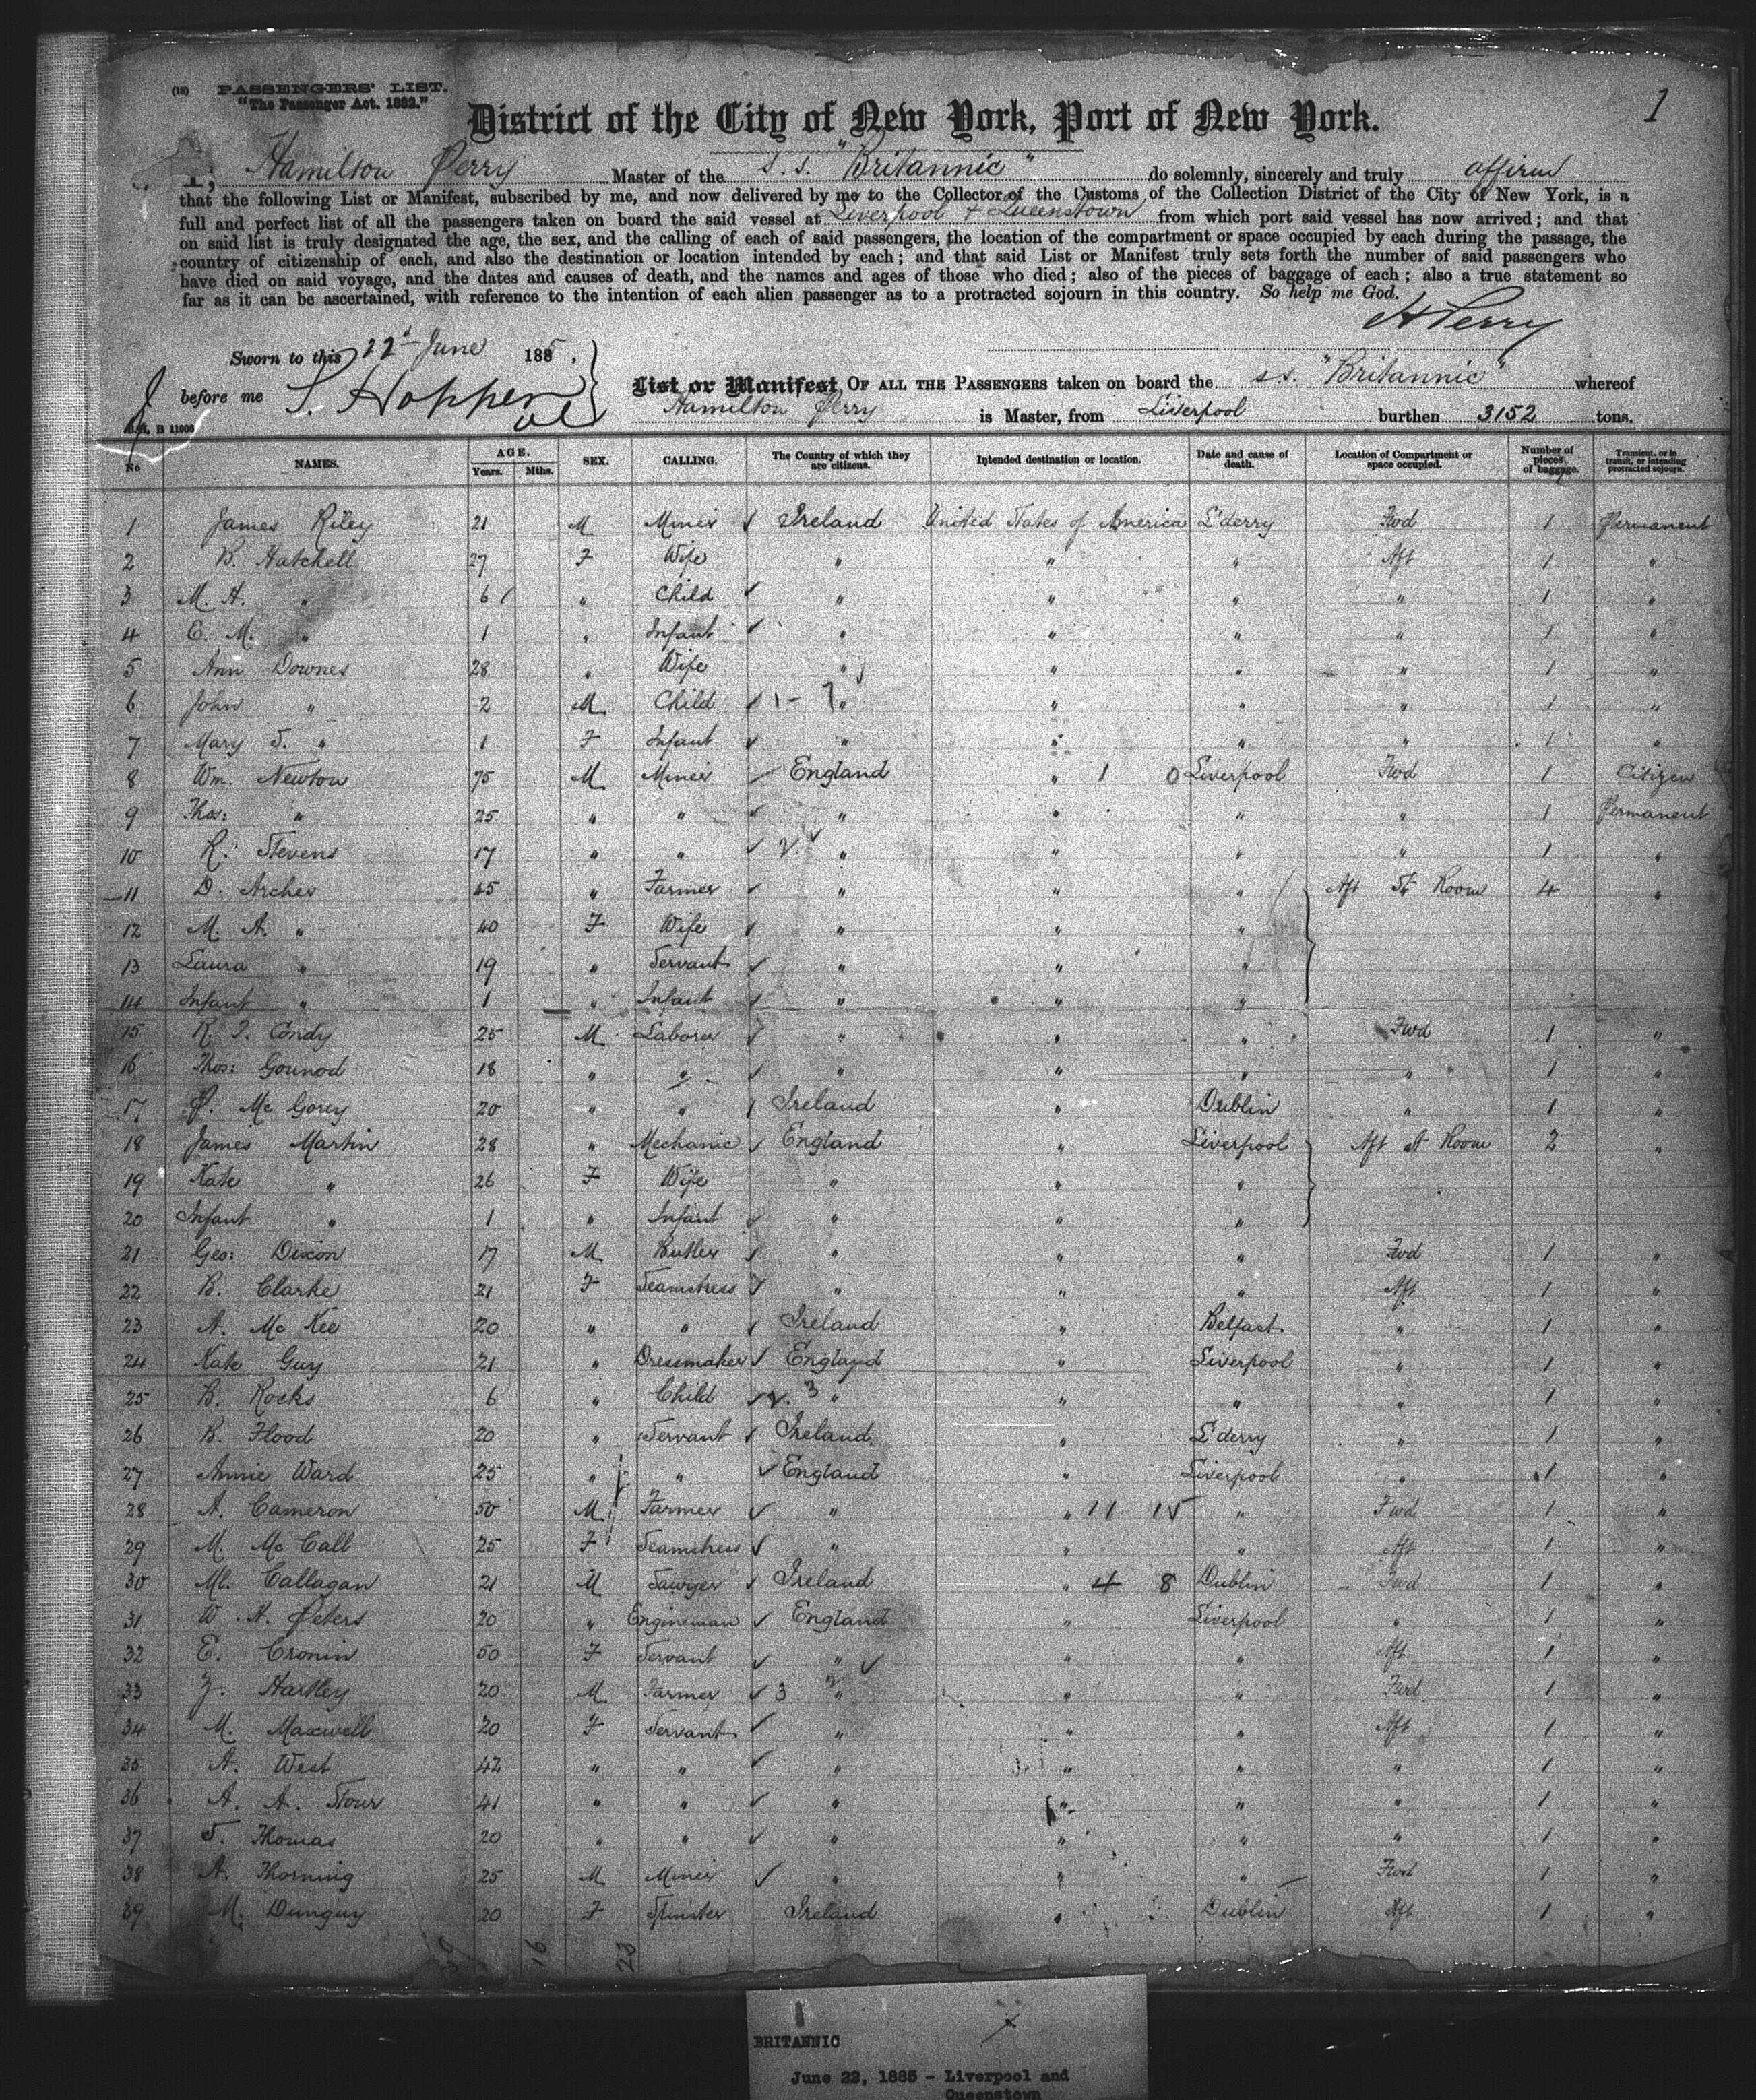 (18) PASSENGERS' LIST.
"The Passenger Act. 1882."
1
District of the City of New York, Port of New York.
I, Hamilton Perry Master of the S.S. "Britannic" do solemnly, sincerely and truly affirm
that the following List or Manifest, subscribed by me, and now delivered by me to the Collector of the Customs of the Collection District of the City of New York, is a
full and perfect list of all the passengers taken on board the said vessel at Liverpool & Queenstown from which port said vessel has now arrived; and that
on said list is truly designated the age, the sex, and the calling of each of said passengers, the location of the compartment or space occupied by each during the passage, the
country of citizenship of each, and also the destination or location intended by each; and that said List or Manifest truly sets forth the number of said passengers who
have died on said voyage, and the dates and causes of death, and the names and ages of those who died; also of the pieces of baggage of each; also a true statement so
far as it can be ascertained, with reference to the intention of each alien passenger as to a protracted sojourn in this country. So help me God.
H Perry
Sworn to this 22d June 1885,
before me S. Hopper
List or Manifest OF ALL THE PASSENGERS taken on board the s.s. "Britannic" whereof
Hamilton Perry is Master, from Liverpool burthen 3152 tons.
No NAMES. AGE. Years. Mths. SEX. CALLING. The Country of which they are citizens. Intended destination or location. Date and cause of death. Location of Compartment or space occupied. Number of pieces of baggage. Transient, or in transit, or intending protracted sojourn.
1 James Riley 21 M Miner Ireland United States of America L'derry Fwd 1 Permanent
2 B. Hatchell 27 F Wife " " " Aft 1 "
3 M. A. " 6 " Child " " " " 1 "
4 E. M. " 1 " Infant " " " " 1 "
5 Ann Downes 28 " Wife " " " " 1 "
6 John " 2 M Child 1 - " " " " 1 "
7 Mary S. " 1 F Infant " " " " 1 "
8 Wm. Newton 75 M Miner England " 1 0 Liverpool Fwd 1 Citizen
9 Thos: " 25 " " " " " " 1 Permanent
10 R. Stevens 17 " " 2 " " " " 1 "
11 D. Archer 45 " Farmer " " " Aft St Room 4 "
12 M. A. " 40 F Wife " " "
13 Laura " 19 " Servant " " "
14 Infant " 1 " Infant " " "
15 R. J. Condy 25 M Laborer " " " Fwd 1 "
16 Thos: Gounod 18 " " " " " " 1 "
17 P. Mc Gorey 20 " " Ireland " Dublin " 1 "
18 James Martin 28 " Mechanic England " Liverpool Aft St Room 2 "
19 Kate " 26 F Wife " " "
20 Infant " 1 " Infant " " "
21 Geo: Dixon 17 M Butler " " " Fwd 1 "
22 B. Clarke 21 F Seamstress " " " Aft 1 "
23 A. Mc Kee 20 " " Ireland " Belfast " 1 "
24 Kate Guy 21 " Dressmaker England " Liverpool " 1 "
25 B. Rocks 6 " Child 2. 3 " " " " 1 "
26 B. Flood 20 " Servant Ireland " L'derry " 1 "
27 Annie Ward 25 " " England " Liverpool " 1 "
28 A. Cameron 50 M Farmer " " 11 15 " Fwd 1 "
29 M. Mc Call 25 F Seamstress " " " Aft 1 "
30 Ml. Callagan 21 M Sawyer Ireland " 4 8 Dublin Fwd 1 "
31 W. H. Peters 20 " Engineman England " Liverpool " 1 "
32 E. Cronin 50 F Servant " " " Aft 1 "
33 Z. Hartley 20 M Farmer 3 2 " " " Fwd 1 "
34 M. Maxwell 20 F Servant " " " Aft 1 "
35 A. West 42 " " " " " " 1 "
36 A. A. Stour 41 " " " " " " 1 "
37 T. Thomas 20 " " " " " " 1 "
38 A. Thorning 25 M Miner " " " Fwd 1 "
39 M. Dunguy 20 F Spinster Ireland " Dublin Aft 1 "
39 16 23
BRITANNIC
June 22, 1885 - Liverpool and
Queenstown